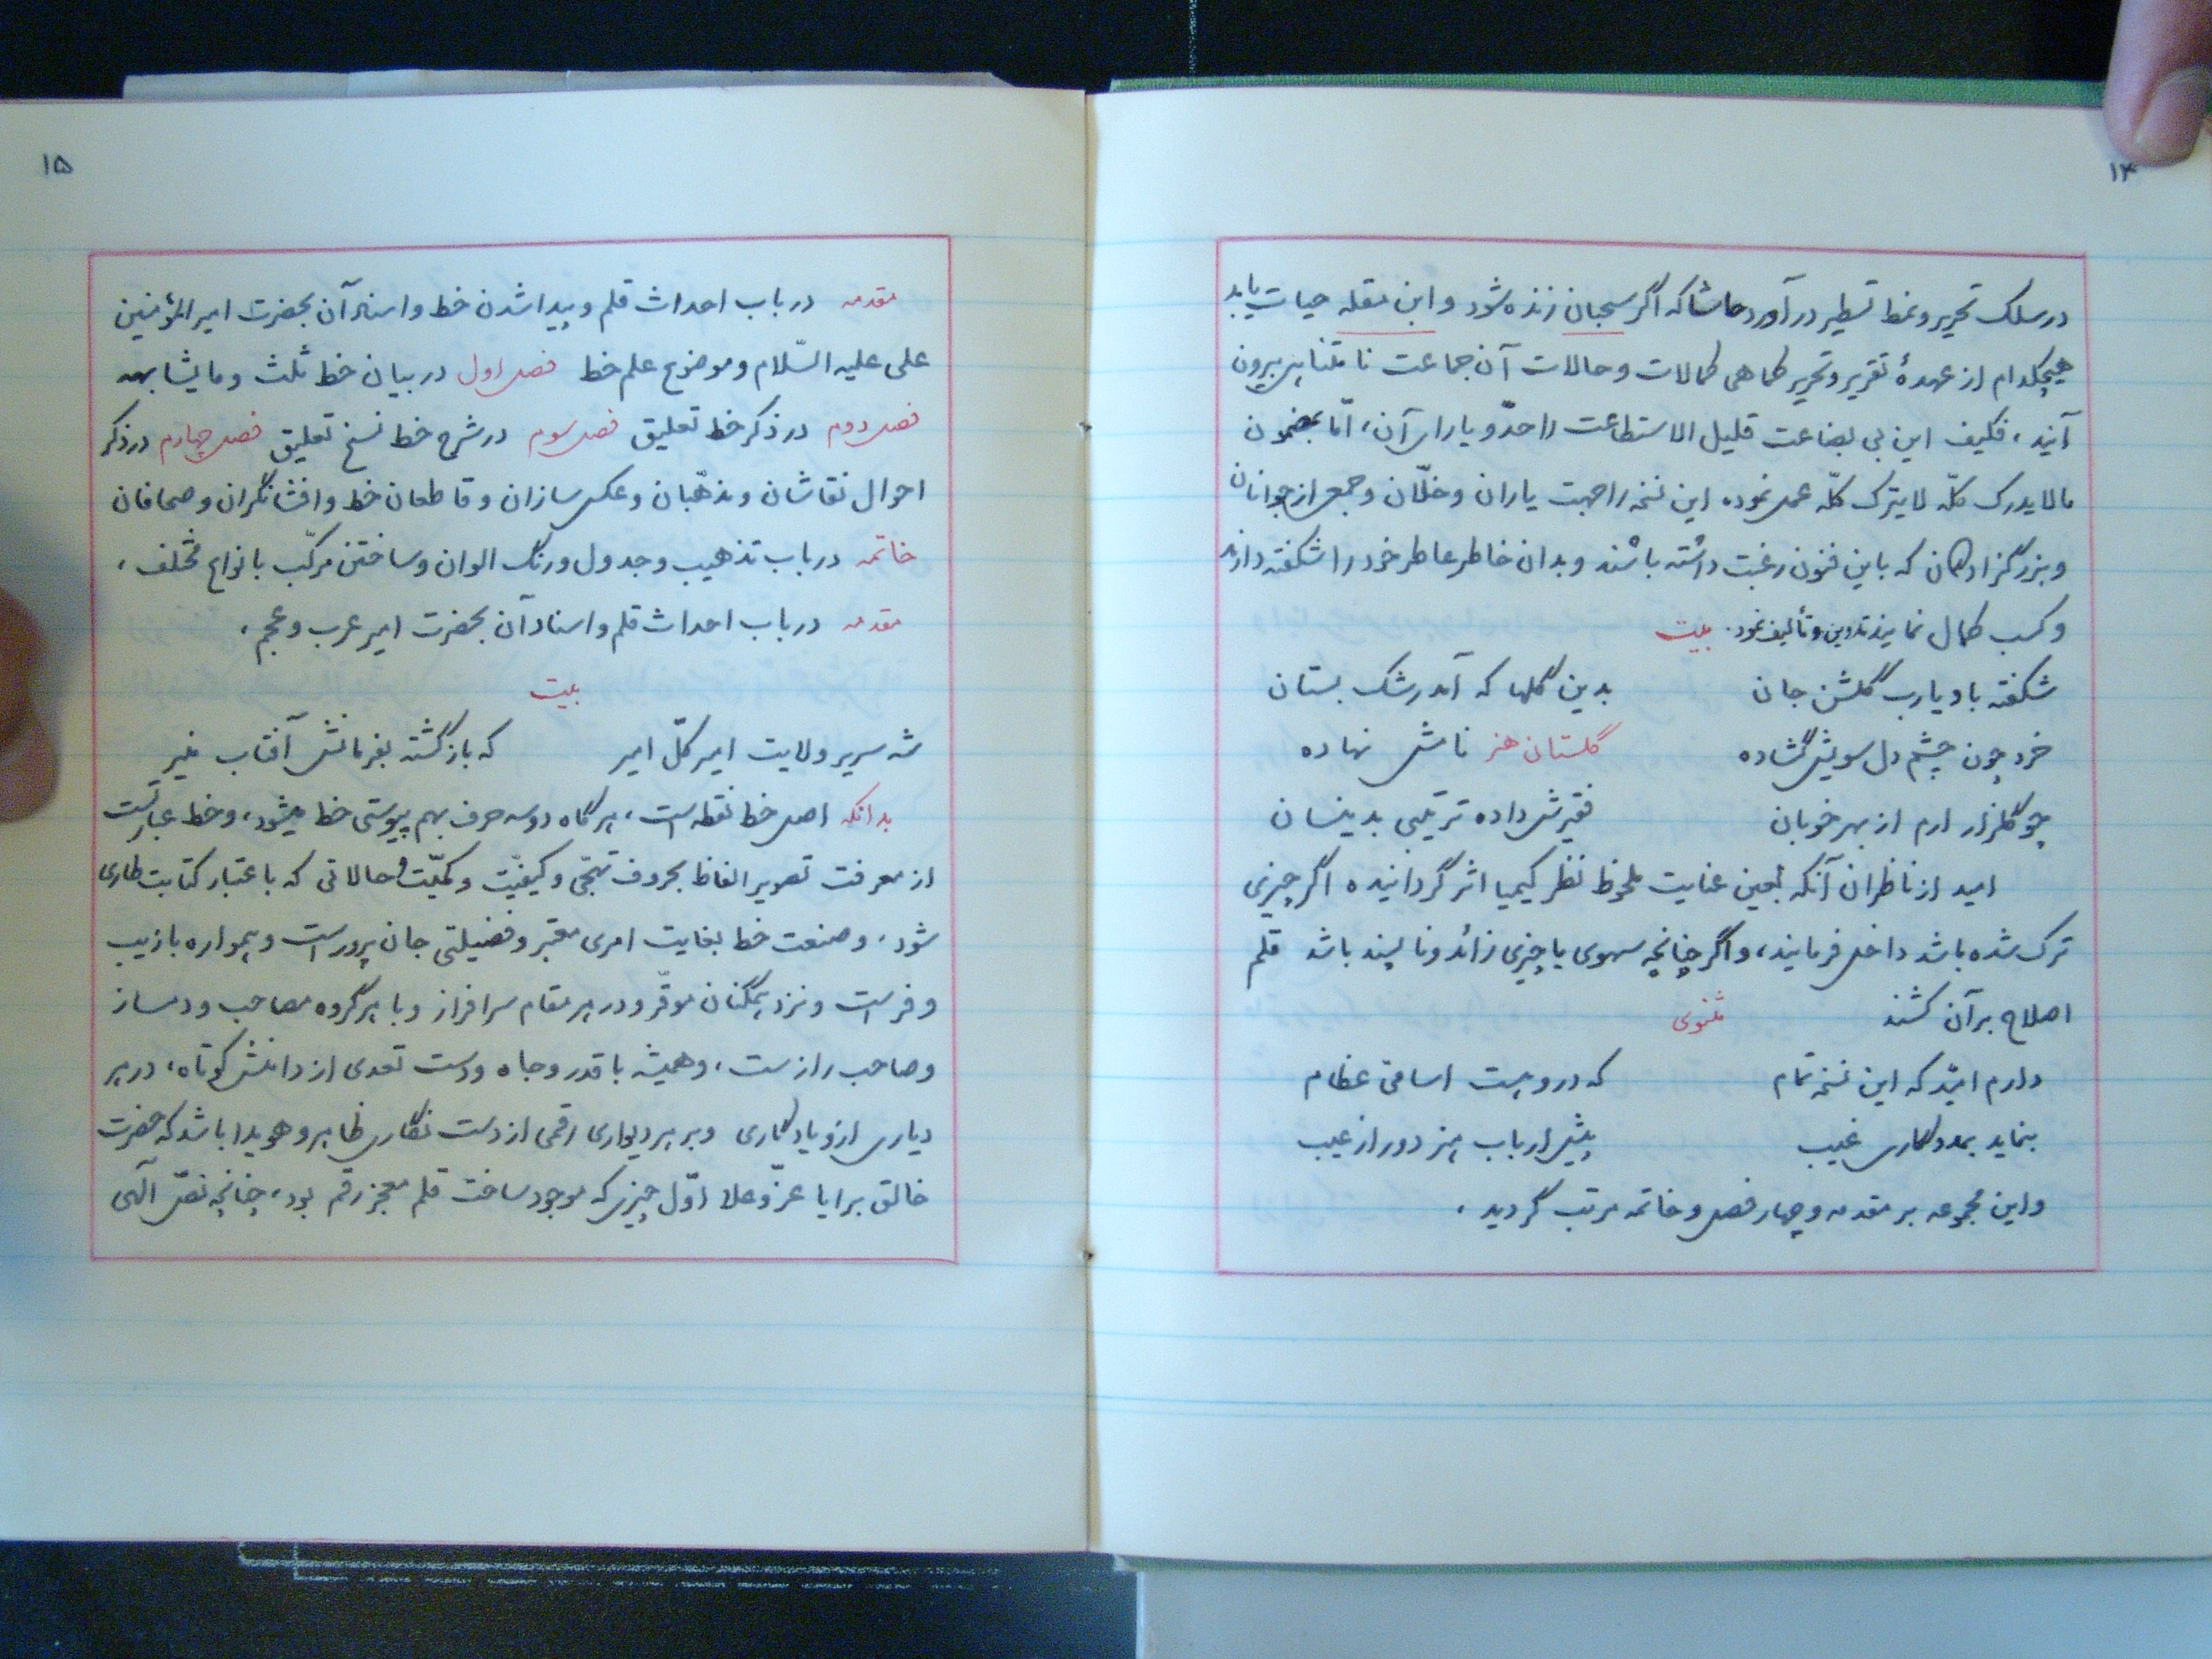 ۱۴
در سلک تحریر و نمط تسطیر در آورد حاشا که اگر سحبان زنده شود و ابن مقله حیات یابد
هیچکدام از عهدهٔ تقریر و تحریر کماهی کمالات و حالات آن جماعت نامتناهی بیرون
آیند، فکیف این بی بضاعت قلیل الاستطاعت را حدّ و یارای آن، امّا بمضمون
مالایدرک کلّه لایترک کلّه عمل نموده این نسخه را جهت یاران و خلّان و جمعی از جوانان
و بزرگزادگان که باین فنون رغبت داشته باشند و بدان خاطر عاطر خود را شکفته دارند
و کسب کمال نمایند تدوین و تألیف نمود. بیت
شکفته باد یارب گلشن جان بدین گلها که آمد رشک بستان
خرد چون چشم دل سویش گشاده گلستان هنر نامش نهاده
چو گلزار ارم از بهر خوبان فقیرش داده ترتیبی بدینسان
امید از ناظران آنکه بعین عنایت ملحوظ نظر کیمیا اثر گردانیده اگر چیزی
ترک شده باشد داخل فرمایند، و اگر چنانچه سهوی یا چیزی زائد و ناپسند باشد قلم
اصلاح بر آن کشند مثنوی
دارم امیّد که این نسخه تمام که دروهست اسامیّ عظام
بنماید بمددکاری غیب پیش ارباب هنر دور از عیب
و این مجموعه بر مقدمه و چهار فصل و خاتمه مرتب گردید.
۱۵
مقدمه در باب احداث قلم و پیدا شدن خط و اسناد آن بحضرت امیرالمؤمنین
علی علیه السّلام و موضوع علم خط فصل اول در بیان خط ثلث و مایشابهه
فصل دوم در ذکر خط تعلیق فصل سوم در شرح خط نسخ تعلیق فصل چهارم در ذکر
احوال نقاشان و مذهّبان و عکس سازان و قاطعان خط و افشانگران و صحافان
خاتمه در باب تذهیب و جدول و رنگ الوان و ساختن مرکّب بانواع مختلف،
مقدمه در باب احداث قلم و اسناد آن بحضرت امیر عرب و عجم،
بیت
شه سریر ولایت امیر کلّ امیر که باز گشته بفرمانش آفتاب منیر
بدانکه اصل خط نقطه است، هرگاه دو سه حرف بهم پیوستی خط میشود، و خط عبارتست
از معرفت تصویر الفاظ بحروف تهجّی و کیفیّت و کمیّت و حالاتی که باعتبار کتابت طاری
شود. و صنعت خط بغایت امری معتبر و فضیلتی جان پرور است و همواره با زیب
و فرست و نزد همگنان موقّر و در هر مقام سرافراز و با هر گروه مصاحب و دمساز
و صاحب رازست، و همیشه با قدر و جاه و دست تعدی از دامنش کوتاه، در هر
دیاری ازو یادگاری و بر هر دیواری رقمی از دست نگاری ظاهر و هویدا باشد که حضرت
خالق برایا عزّ و علا اوّل چیزی که موجود ساخت قلم معجز رقم بود، چنانچه نصّ الهی